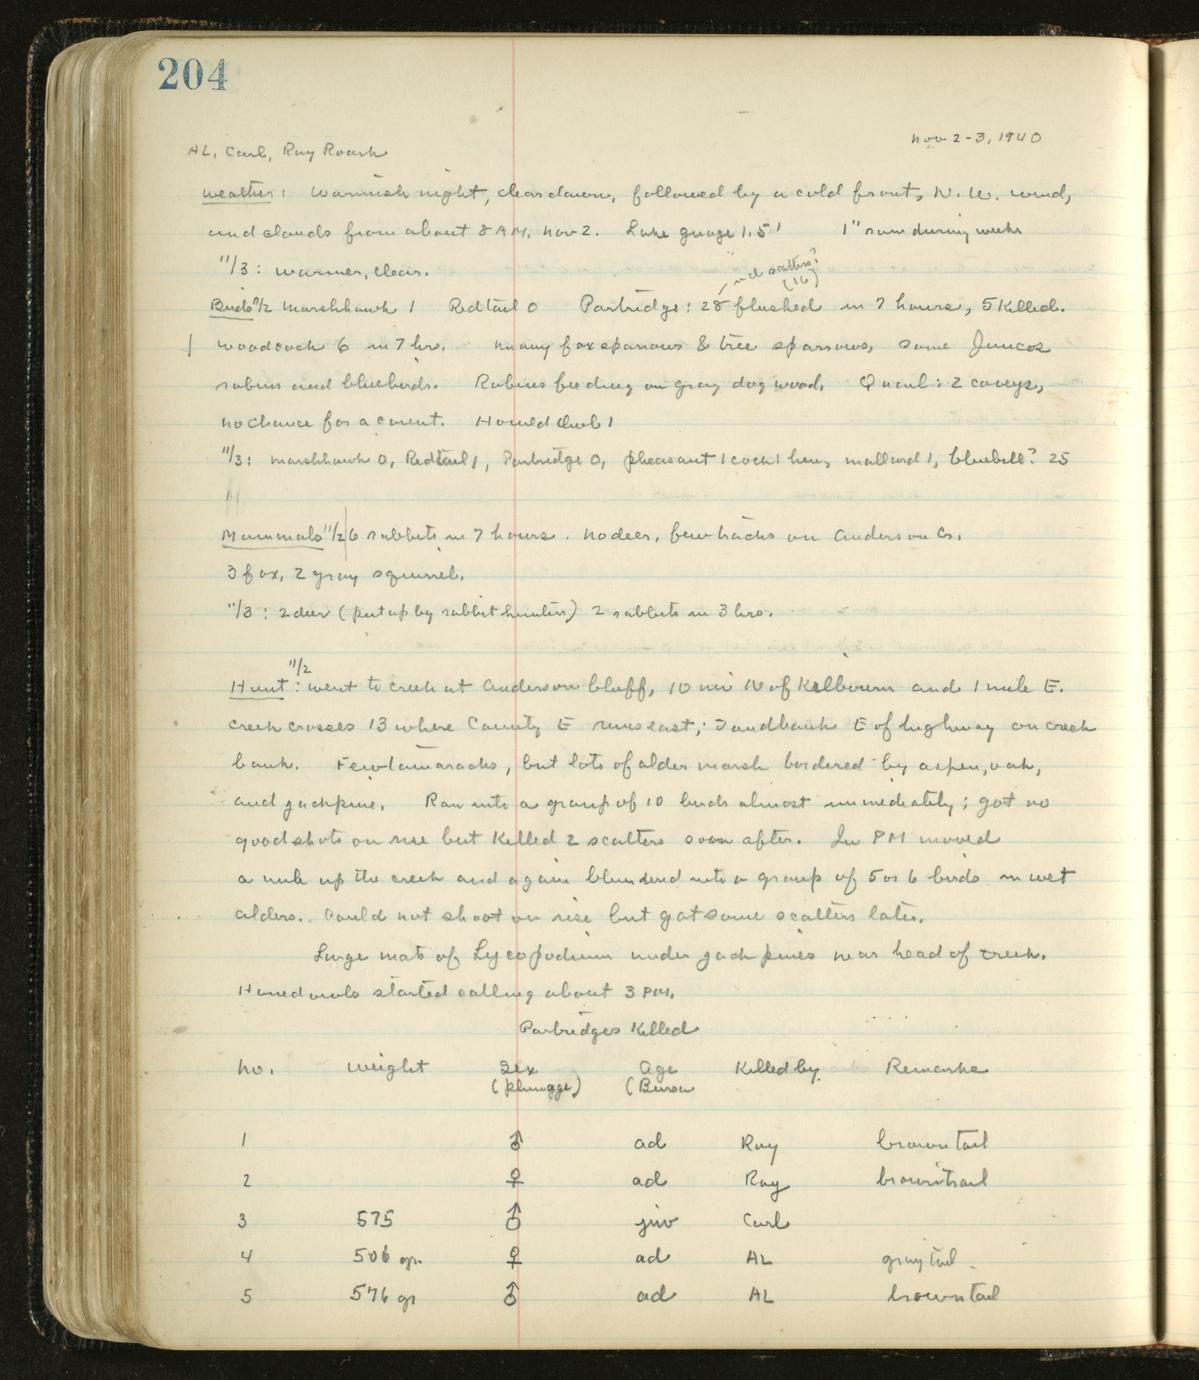 204
Nov 2-3, 1940
AL, Carl, Ray Roark
Weather: Warmish night, clear dawn, followed by a cold front, N. W. wind,
and clouds from about 8 AM. Nov 2. Lake guage 1.5' 1" rain during week
11/3: warmer, clear.
incl scatters?
(16)
Birds 11/2 Marshhawk 1 Redtail 0 Partridge: 28 flushed in 7 hours, 5 killed.
Woodcock 6 in 7 hr. Many fox sparrows & tree sparrows, some Juncos
robins and bluebirds. Robins feeding on gray dogwood. Quail: 2 coveys,
no chance for a count. Horned Owl 1
11/3: Marshhawk 0, Redtail 1, Partridge 0, pheasant 1 cock 1 hen, mallard 1, bluebill? 25
M
Mammals 11/2 6 rabbits in 7 hours. No deer, few tracks on Anderson Cr.
3 fox, 2 gray squirrel.
11/3: 2 deer (put up by rabbit hunters) 2 rabbits in 3 hrs.
11/2
Hunt: Went to creek at Anderson bluff, 10 mi N of Kilbourn and 1 mile E.
Creek crosses 13 where County E runs east; sandbank E of highway on creek
bank. Few tamaracks, but lots of alder marsh bordered by aspen, oak,
and jackpine. Ran into a group of 10 birds almost immediately; got no
good shots on rise but killed 2 scatters soon after. In PM moved
a mile up the creek and again blundered into a group of 5 or 6 birds in wet
alders. Could not shoot on rise but got some scatters later.
Large mats of Lycopodium under jack pines near head of creek.
Horned owls started calling about 3 PM.
Partridges Killed
No. Weight Sex Age Killed by Remarks
(plumage) (Bursa
1 ♂ ad Ray brown tail
2 ♀ ad Ray brown tail
3 575 ♂ juv Carl
4 506 gr. ♀ ad AL gray tail
5 576 gr ♂ ad AL brown tail